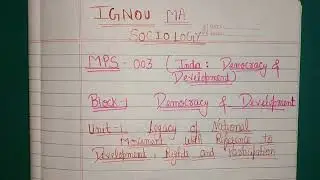 IGNOU MA
SOCIOLOGY
MPS-003 (India: Democracy &
Development)
Block-1 Democracy & Development
Unit-1. Legacy of National
Movement with Reference to
Development, Rights and Participation